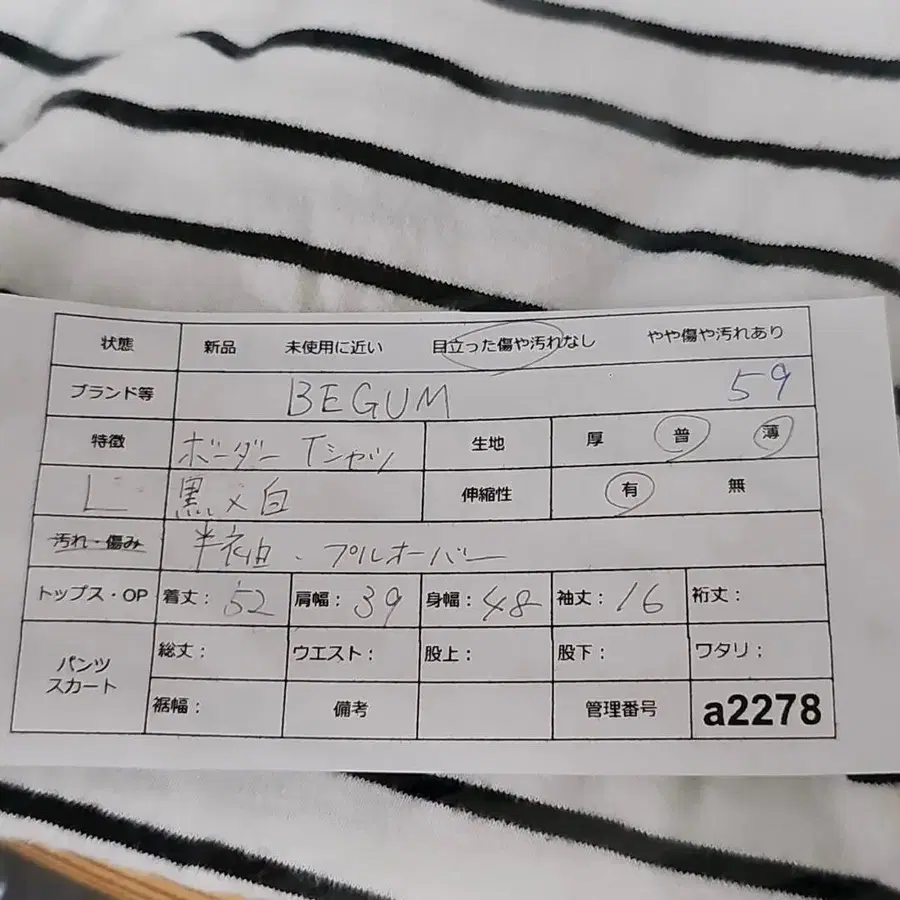 状態 新品 未使用に近い 目立った傷や汚れなし やや傷や汚れあり
ブランド等 BEGUM 59
特徴 ボーダー Tシャツ 生地 厚 普 薄
L 黒×白 伸縮性 有 無
汚れ・傷み 半袖・プルオーバー
トップス・OP 着丈： 52 肩幅： 39 身幅： 48 袖丈： 16 裄丈：
パンツ
スカート
総丈： ウエスト： 股上： 股下： ワタリ：
裾幅： 備考 管理番号 a2278